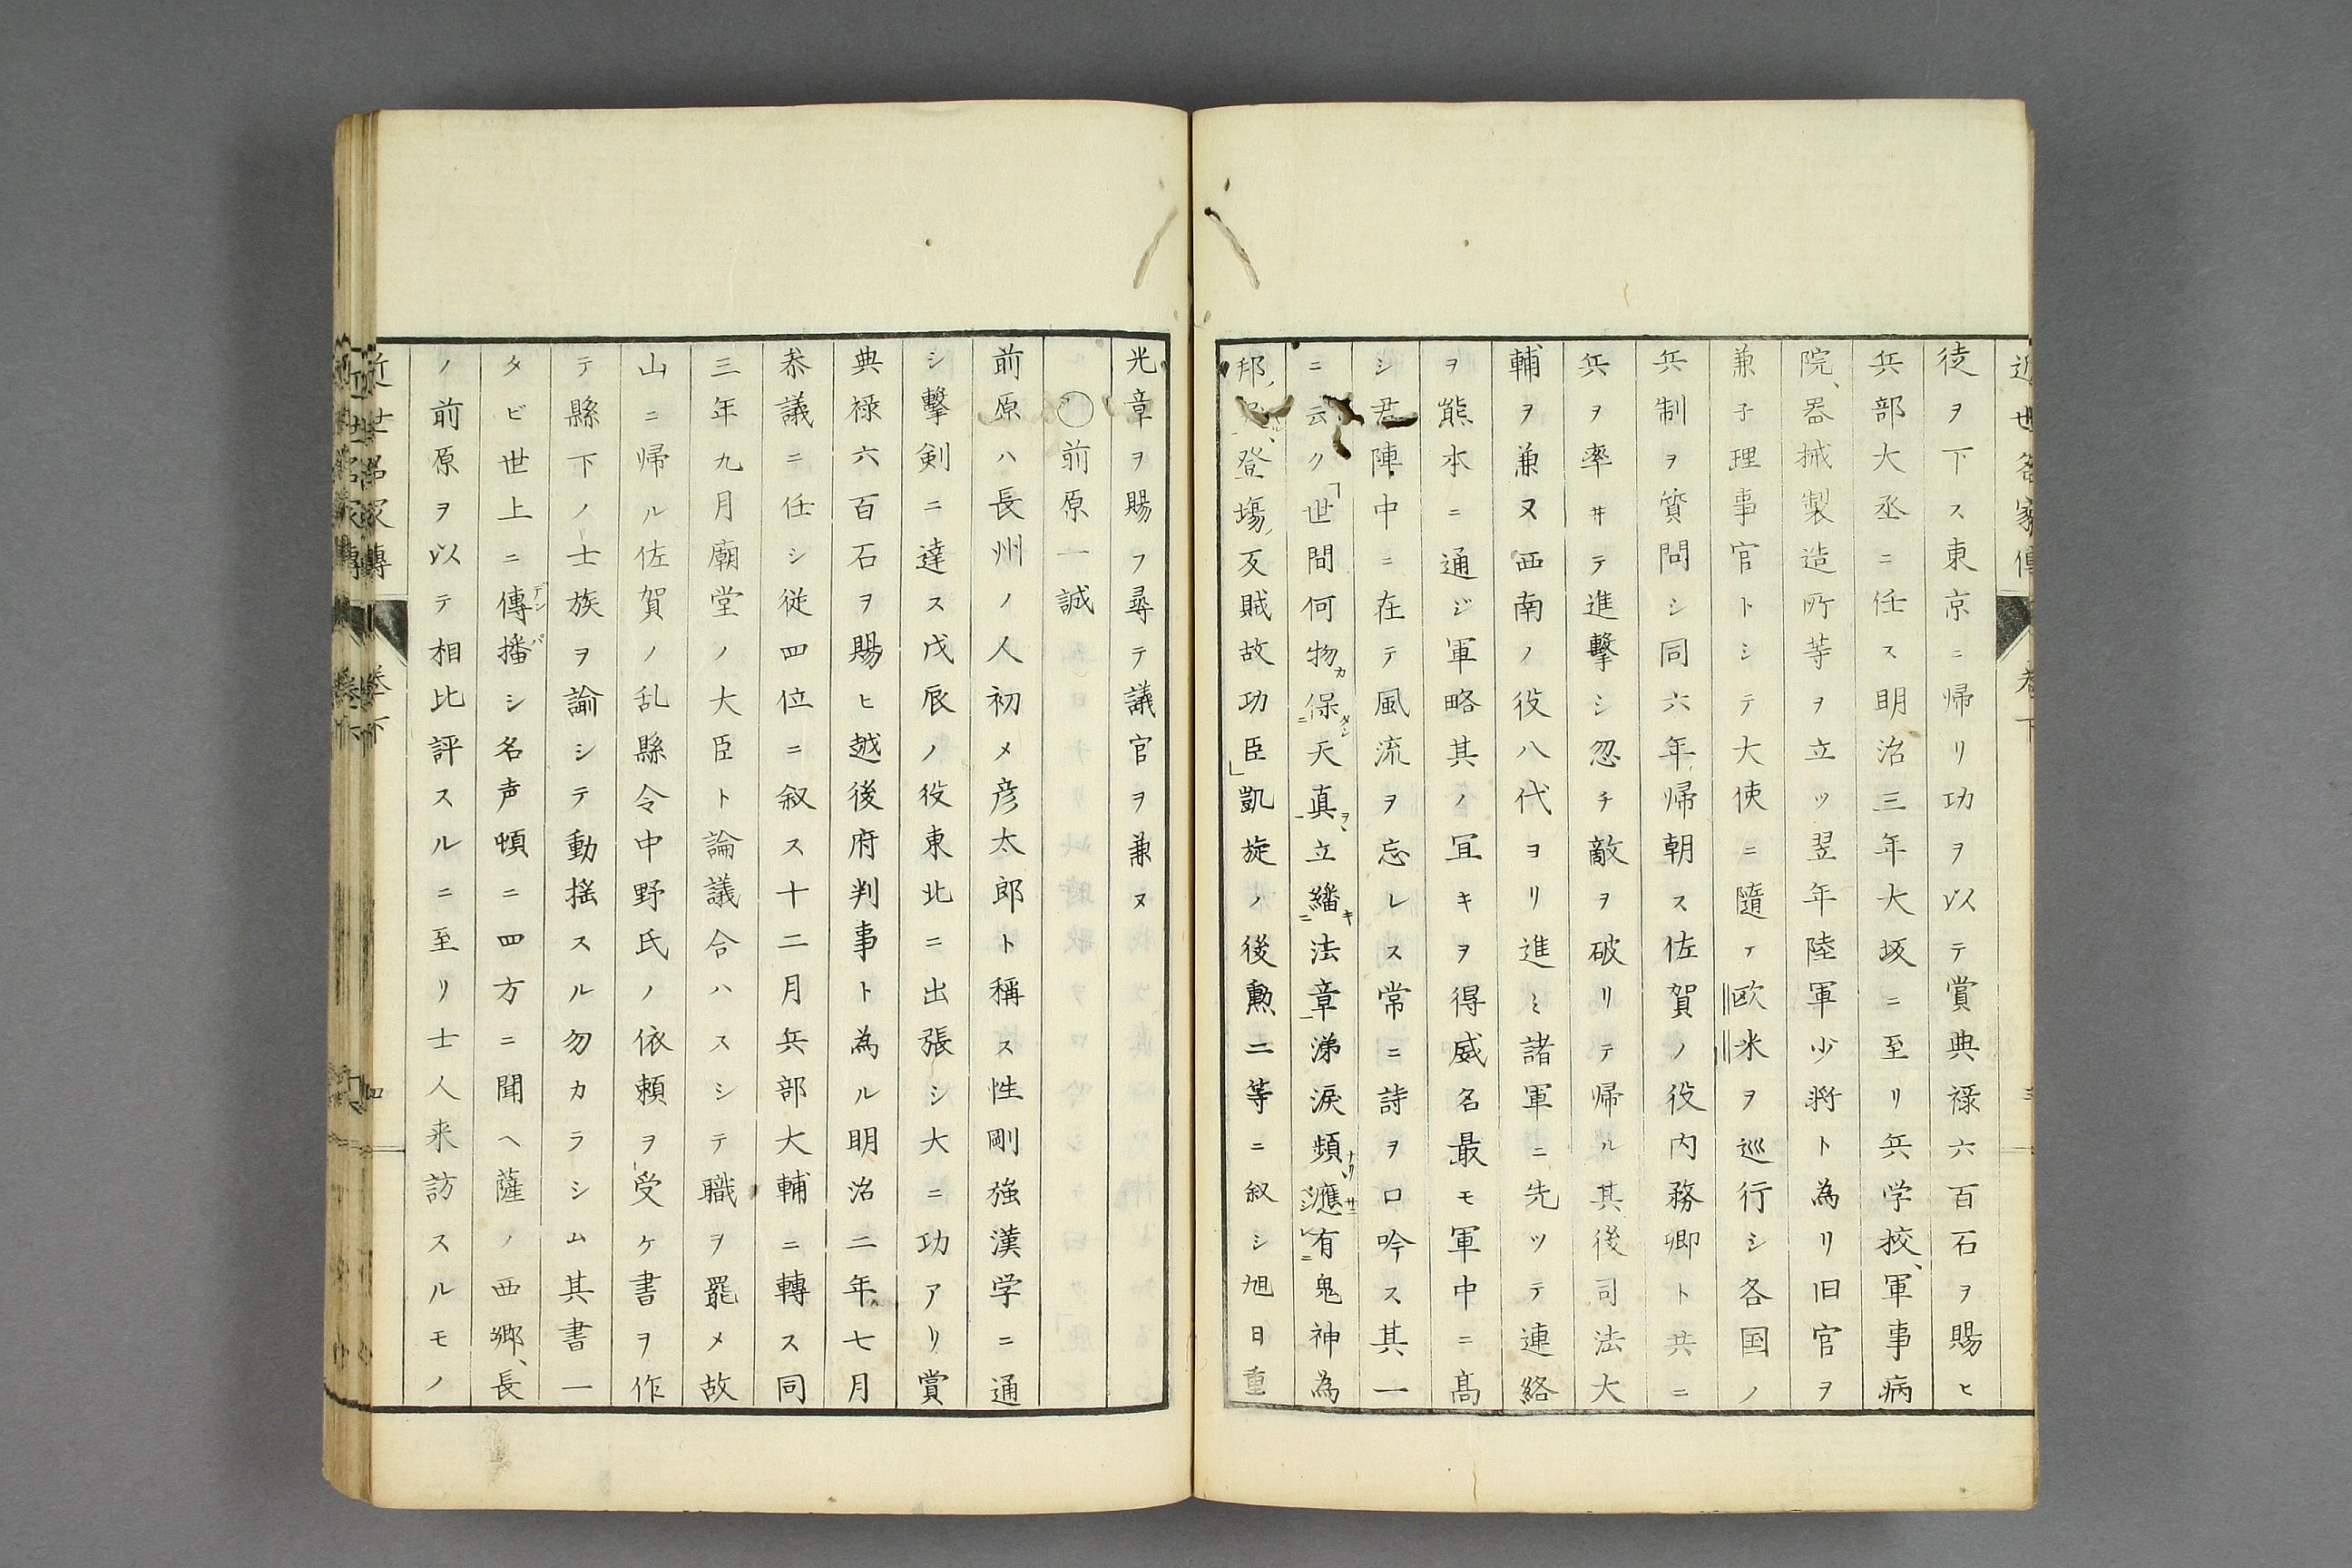 近世名家傳 卷下
徒ヲ下ス東京ニ帰リ功ヲ以テ賞典禄六百石ヲ賜ヒ
兵部大丞ニ任ス明治三年大坂ニ至リ兵学校、軍事病
院、器械製造所等ヲ立ツ翌年陸軍少将ト為リ旧官ヲ
兼子理事官トシテ大使ニ隨テ欧米ヲ巡行シ各国ノ
兵制ヲ質問シ同六年帰朝ス佐賀ノ役内務卿ト共ニ
兵ヲ率ヰテ進撃シ忽チ敵ヲ破リテ帰ル其後司法大
輔ヲ兼ヌ西南ノ役八代ヨリ進ミ諸軍ニ先ツテ連絡
ヲ熊本ニ通ジ軍略其ノ冝キヲ得威名最モ軍中ニ髙
シ君陣中ニ在テ風流ヲ忘レス常ニ詩ヲ口吟ス其一
ニ云ク「世間何物カ保ニ天真一ヲ、立繙ニキ法章一涕涙頻應レ有ニ鬼神為
邦、登塲、反賊故功臣」凱旋ノ後勲二等ニ叙シ旭日重
光章ヲ賜フ尋テ議官ヲ兼ヌ
○前原一誠
前原ハ長州ノ人初メ彦太郎ト稱ス性剛強漢学ニ通
シ擊剣ニ達ス戊辰ノ役東北ニ出張シ大ニ功アリ賞
典禄六百石ヲ賜ヒ越後府判事ト為ル明治二年七月
叅議ニ任シ従四位ニ叙ス十二月兵部大輔ニ轉ス同
三年九月廟堂ノ大臣ト論議合ハスシテ職ヲ罷メ故
山ニ帰ル佐賀ノ乱縣令中野氏ノ依頼ヲ受ケ書ヲ作
テ縣下ノ士族ヲ諭シテ動揺スル勿カラシム其書一
タビ世上ニ傳播デンパシ名声頓ニ四方ニ聞ヘ薩ノ西郷、長
ノ前原ヲ以テ相比評スルニ至リ士人来訪スルモノ
近世名家傳 卷下